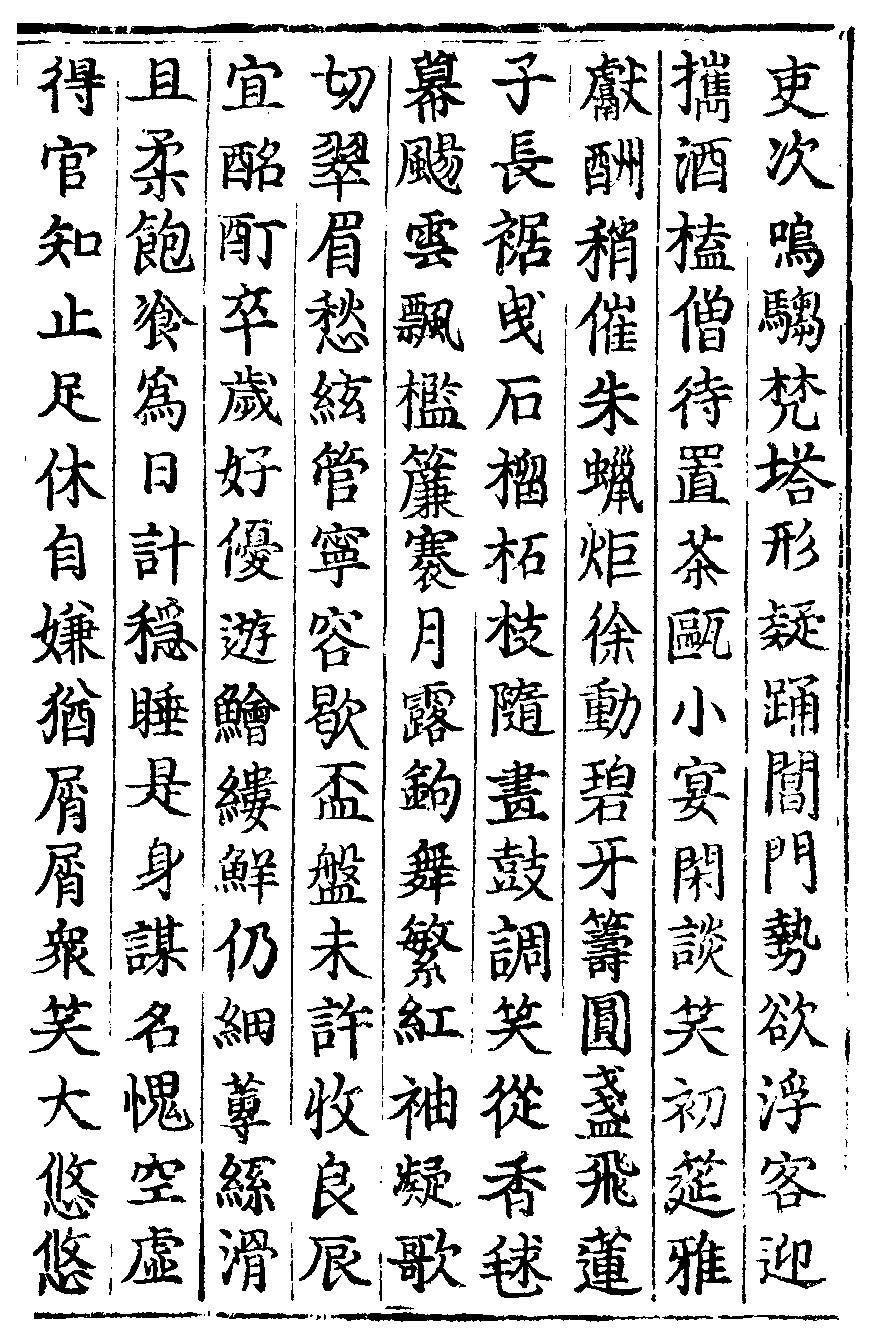 吏次鳴騶梵塔形疑踊閶門勢欲浮客迎
攜酒榼僧待置茶甌小宴閑談笑初筵雅
獻酬稍催朱蠟炬徐動碧牙籌圓盞飛蓮
子長裾曳石榴柘枝隨畫鼓調笑從香毬
幕颺雲飄檻簾褰月露鉤舞繁紅袖凝歌
切翠眉愁絃管寧容歇盃盤未許收良辰
宜酩酊卒歲好優遊鱠縷鮮仍細蓴絲滑
且柔飽飡爲日計穩睡是身謀名愧空虛
得官知止足休自嫌猶屑屑衆笑大悠悠